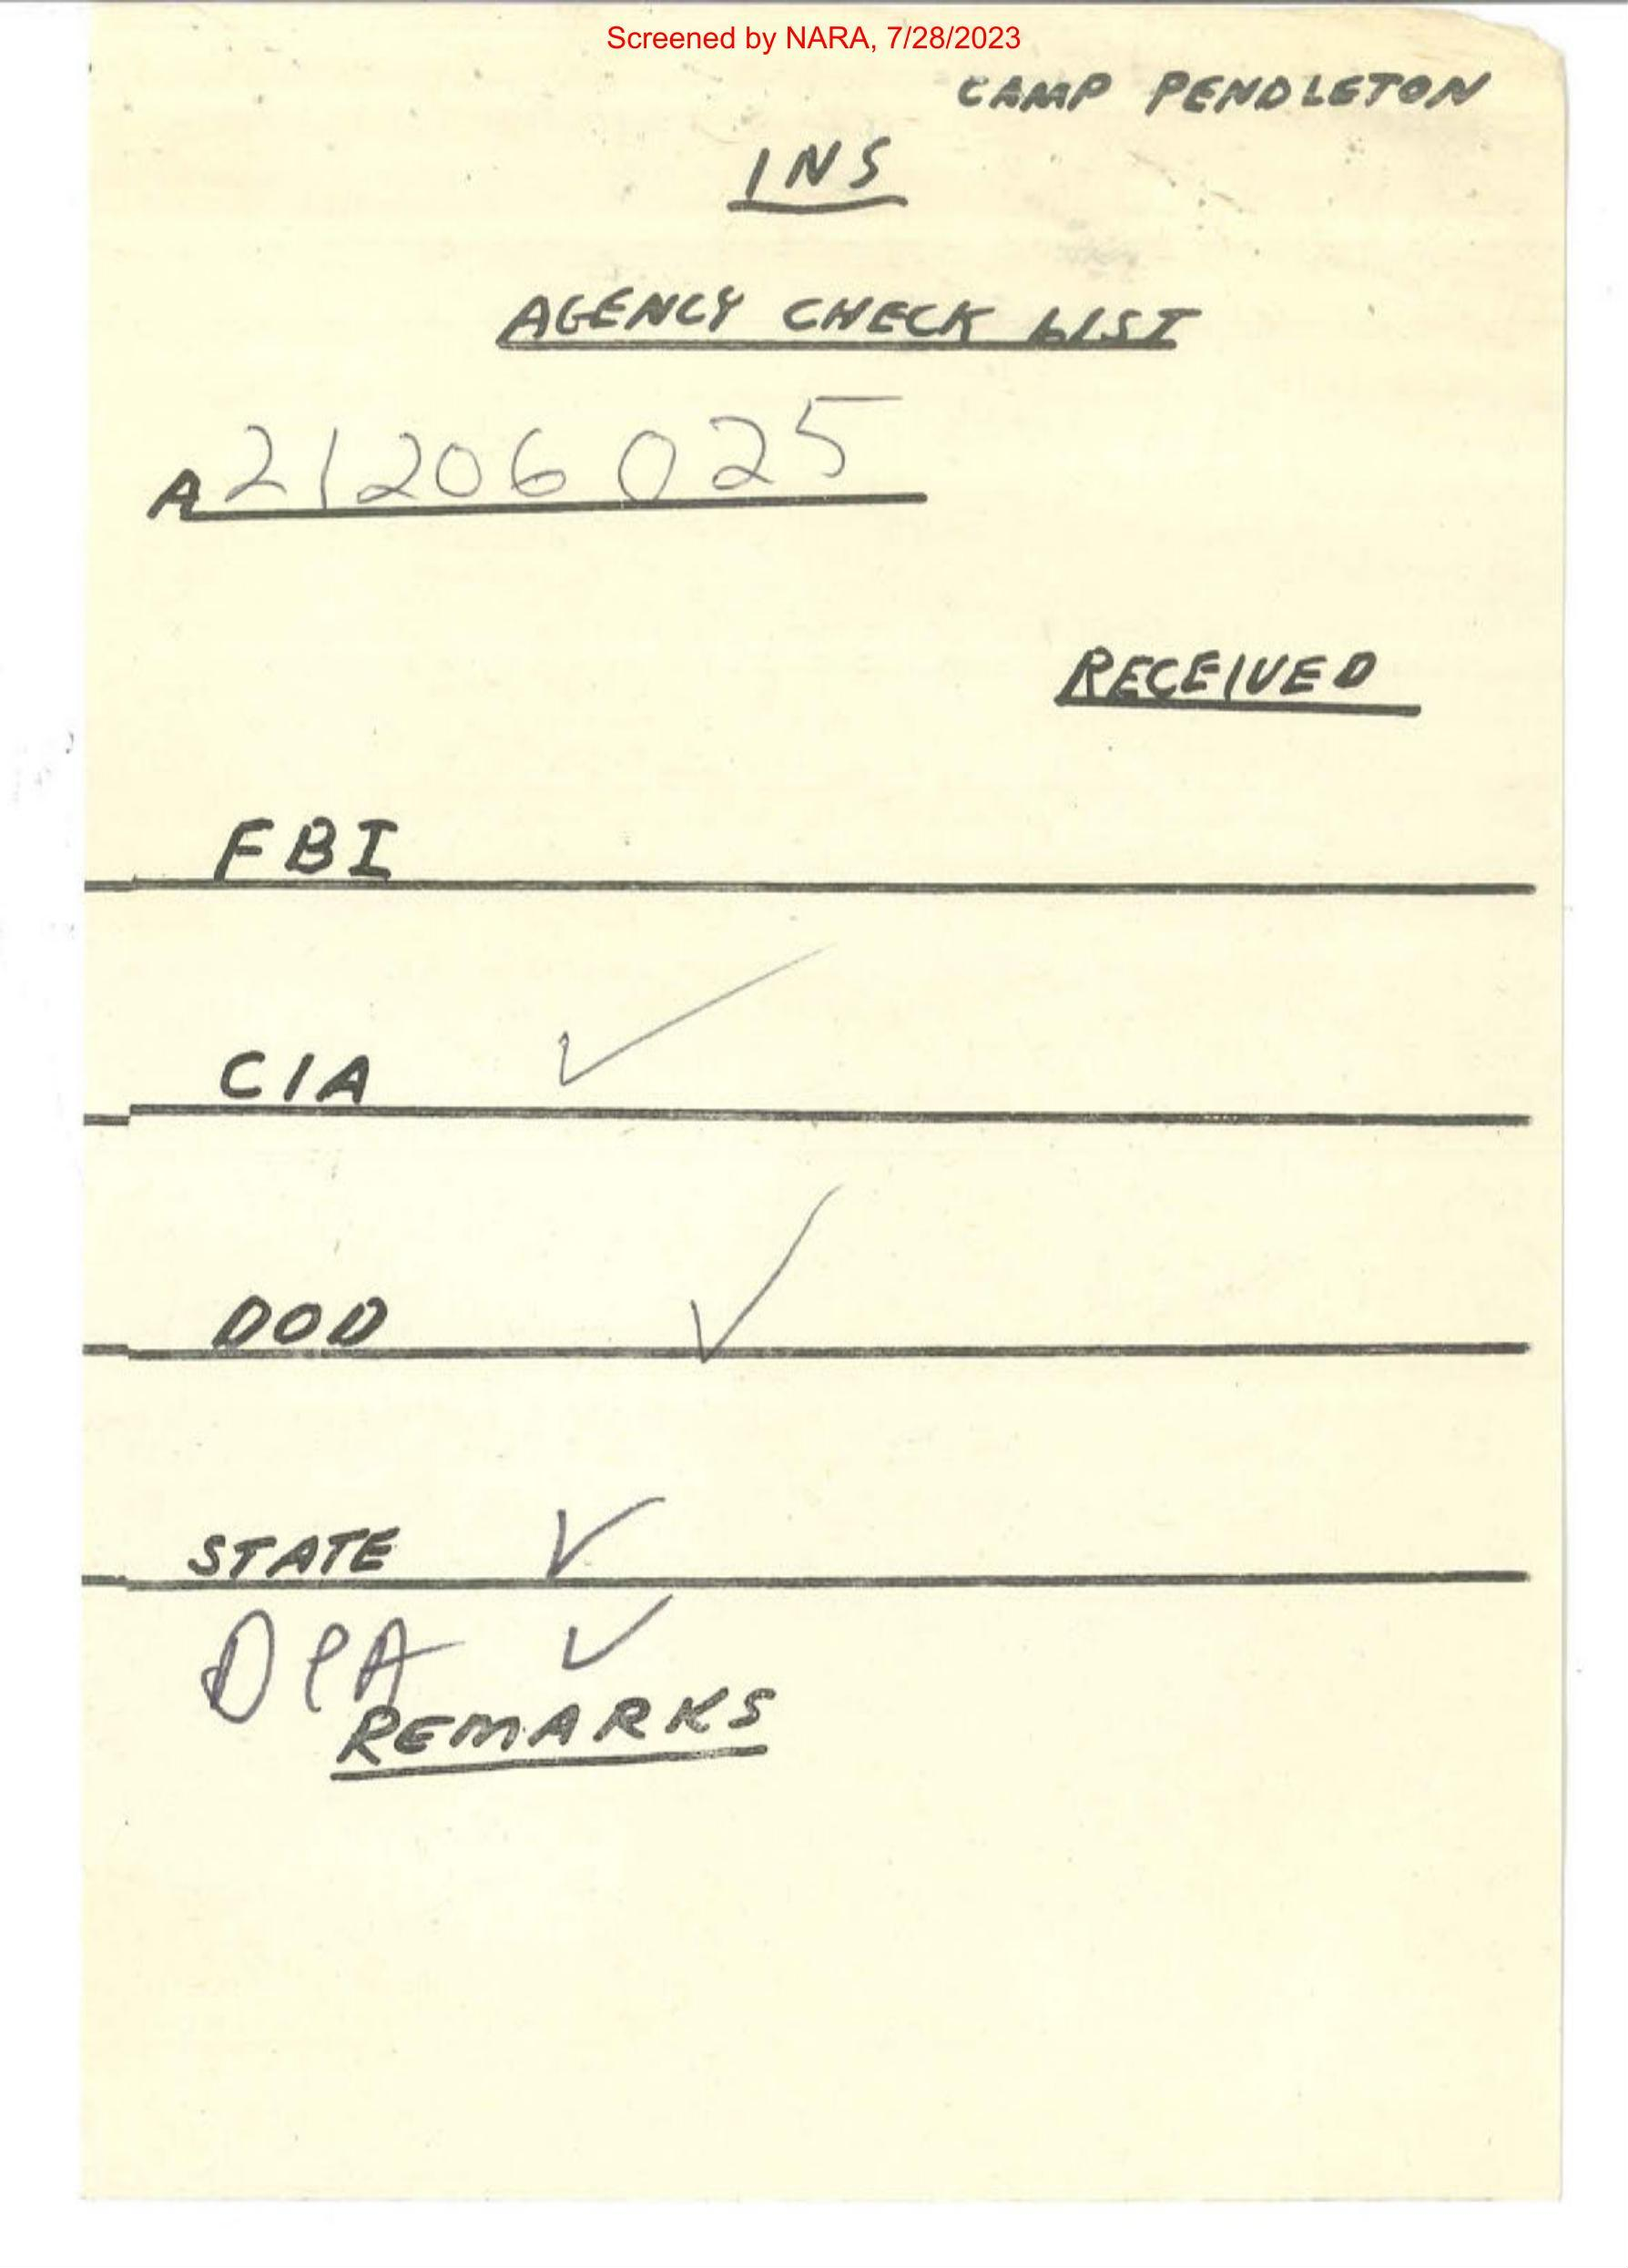 Screened by NARA, 7/28/2023
CAMP PENDLETON
INS
AGENCY CHECK LIST
A 21206 025
RECEIVED
FBI
CIA ✓
DOD ✓
STATE ✓
DEA ✓
REMARKS